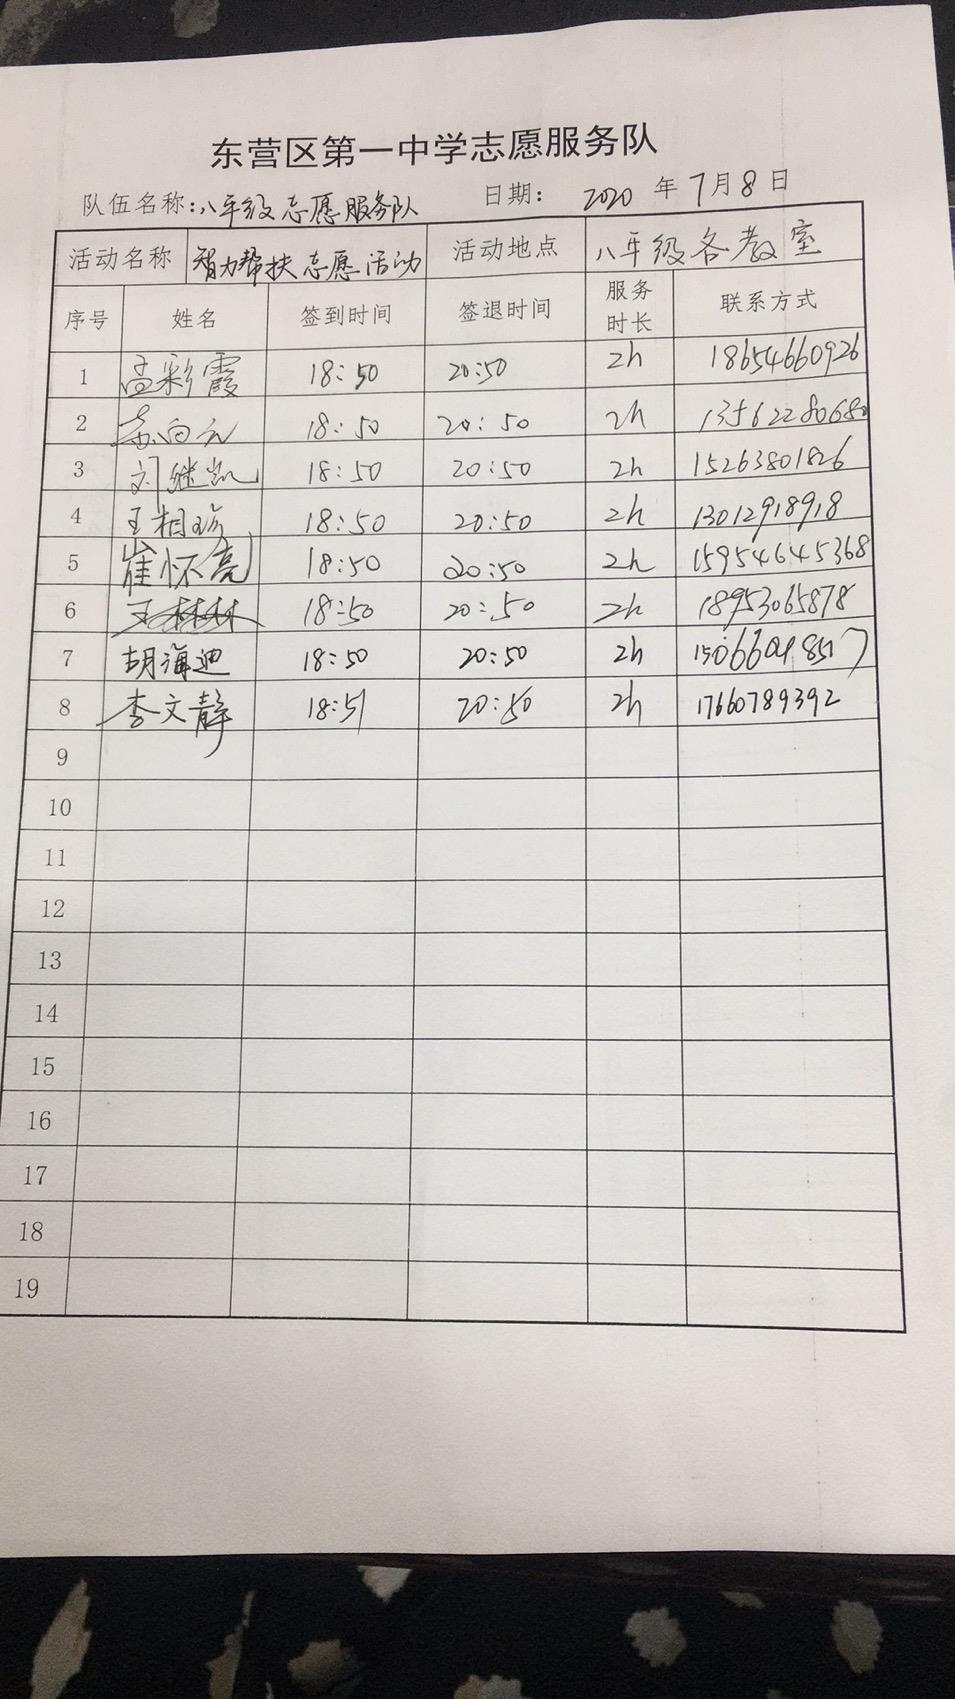 东营区第一中学志愿服务队
队伍名称：八年级志愿服务队 日期： 2020 年 7月 8 日
活动名称 智力帮扶志愿活动 活动地点 八年级各教室
序号 姓名 签到时间 签退时间 服务时长 联系方式
1 孟彩霞 18:50 20:50 2h 18654660926
2 18:50 20:50 2h 13562280680
3 刘继凯 18:50 20:50 2h 15263801826
4 王相珍 18:50 20:50 2h 13012918918
5 崔怀亮 18:50 20:50 2h 15954645368
6 王林林 18:50 20:50 2h 18953065878
7 胡海迪 18:50 20:50 2h
8 李文静 18:51 20:50 2h 17660789392
9
10
11
12
13
14
15
16
17
18
19